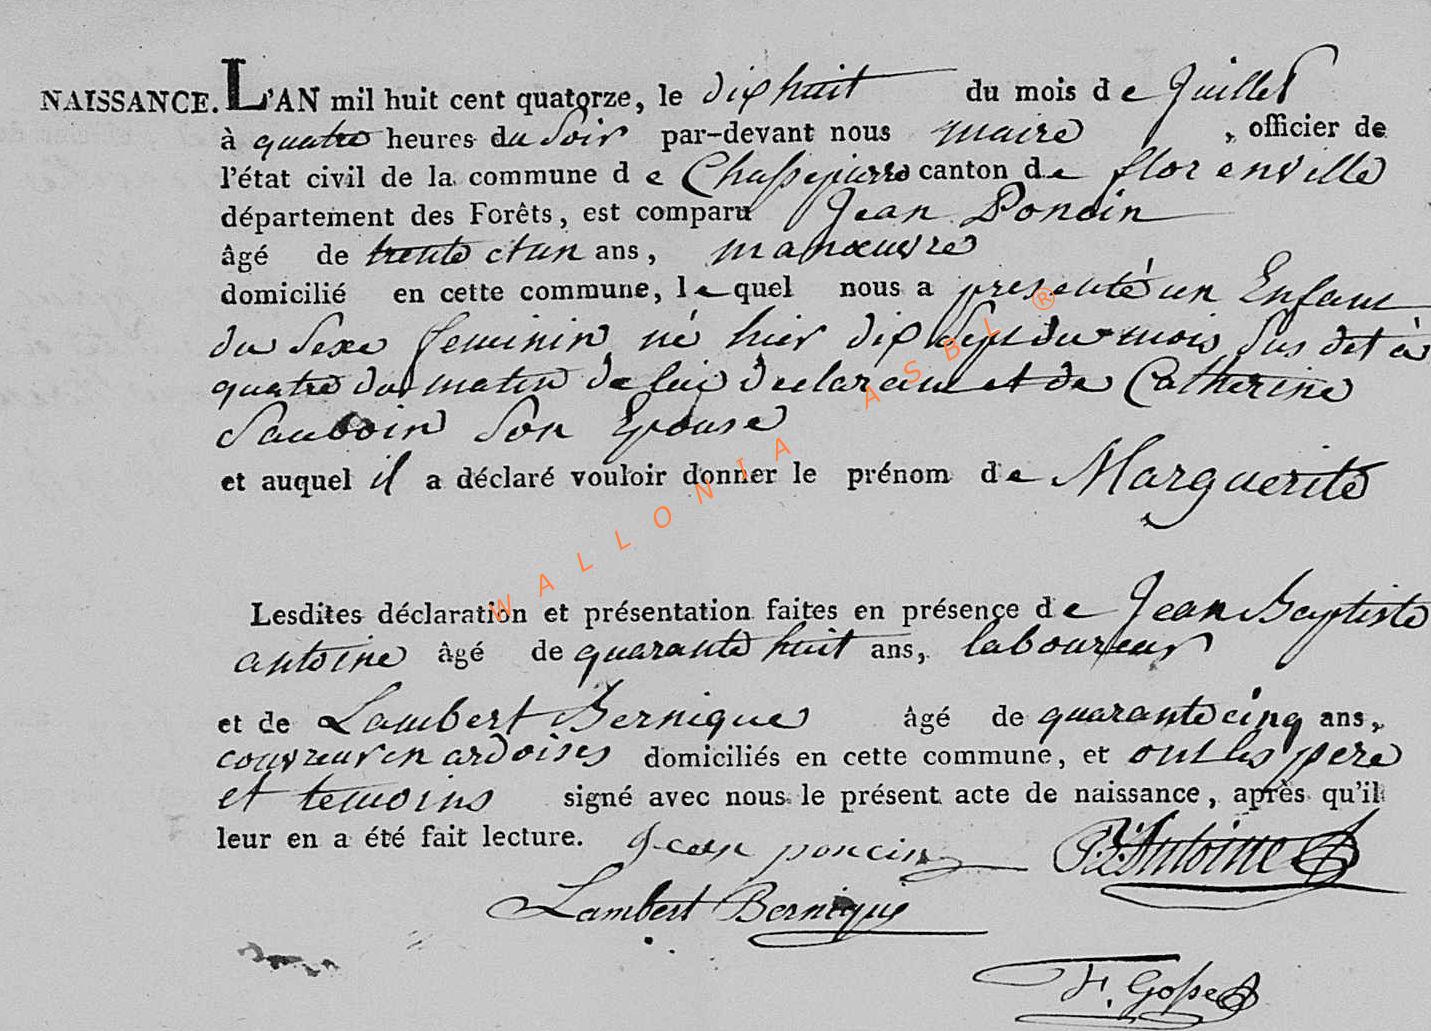 NAISSANCE. L'AN mil huit cent quatorze, le dix huit du mois de Juillet
à quatre heures du Soir par-devant nous maire , officier de
l'état civil de la commune de Chassepierre canton de florenville
département des Forêts, est comparu Jean Poncin
âgé de trente et un ans, manœuvre
domicilié en cette commune, lequel nous a presenté un Enfant
du Sexe feminin né hier dix Sept du mois Sus dit à
quatre du matin de lui declarant et de Catherine
Son Epouse
et auquel il a déclaré vouloir donner le prénom de Marguerite
Lesdites déclaration et présentation faites en présence de Jean Baptiste
antoine âgé de quarante huit ans, laboureur
et de Lambert Bernique âgé de quarante cinq ans,
couvreur en ardoises domiciliés en cette commune, et ont les pere
et temoins signé avec nous le présent acte de naissance, après qu'il
leur en a été fait lecture. Jean poncin Antoine
Lambert Bernique
F. Gosse
WALLONIA ASBL ®